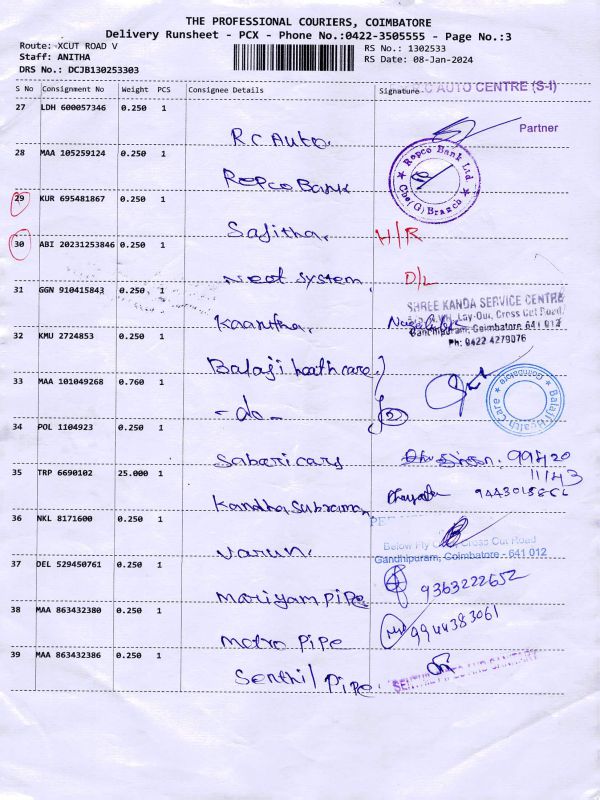 THE PROFESSIONAL COURIERS, COIMBATORE
Delivery Runsheet - PCX - Phone No.:0422-3505555 - Page No.:3
Route: XCUT ROAD V
RS No.: 1302533
Staff: ANITHA
RS Date: 08-Jan-2024
DRS No.: DCJB130253303
S No Consignment No Weight PCS Consignee Details Signature
AUTO CENTRE (S-I)
27 LDH 600057346 0.250 1
R.C Auto.
Partner
28 MAA 105259124 0.250 1
Repco Bank
Repco Bank Ltd.
Cbe(G) Branch
29 KUR 695481867 0.250 1
Sajitha.
H/R
30 ABI 20231253846 0.250 1
Neot system.
D/L
31 GGN 910415843 0.250 1
SHREE KANDA SERVICE CENTRE
Lay-Out, Cross Cut Road,
Gandhipuram, Coimbatore 641 012
Ph: 0422 4279076
Kaantha.
32 KMU 2724853 0.250 1
Balaji heath care
33 MAA 101049268 0.760 1
-do-
2
Balaji Health Care
Coimbatore
34 POL 1104923 0.250 1
Sabari cars
99420
11143
35 TRP 6690102 25.000 1
Kandha Subraman
36 NKL 8171600 0.250 1
Varun.
Below Fly Cross Cut Road
Gandhipuram, Coimbatore - 641 012
37 DEL 529450761 0.250 1
Mariyam Pipe
9363222652
38 MAA 863432380 0.250 1
Metro Pipe
9944383061
39 MAA 863432386 0.250 1
Senthil Pipe
AND SANITARY